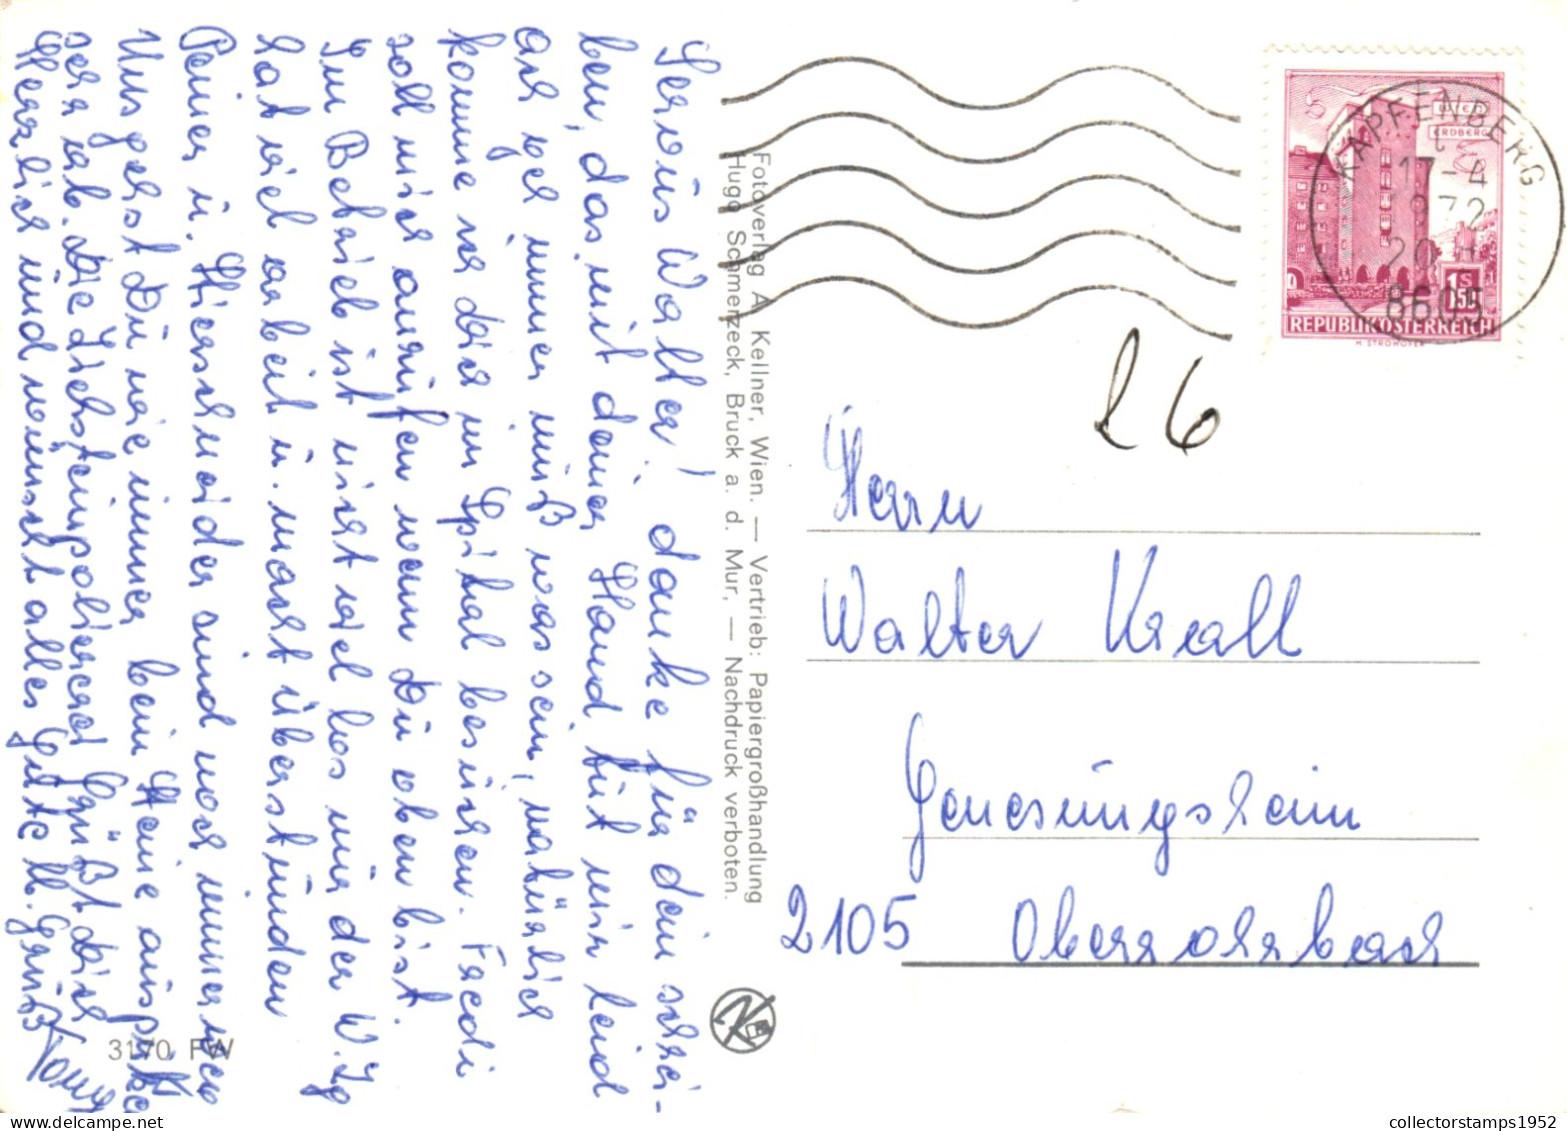 Servus Walter! danke für dein schrei-
ben, das mit deiner Hand tut mir leid
ach wer immer muß was sein, natürlich
komme ich dich im Spital besuchen. Fredi
soll mich anrufen wenn Du oben bist.
Im Betrieb ist nicht viel los nur der W. Ig
hat viel arbeit u. macht überstunden
Peiner u. Hierschneider sind noch immer
Uns gehst Du wie immer beim Heine
sehr ab. Die Liechsteinpoliererei Grüßt dich
Herzlich und wünscht alles Gute M. Gruß Tony
Fotoverlag A. Kellner, Wien. — Vertrieb: Papiergroßhandlung
Hugo Schmerzeck, Bruck a. d. Mur, — Nachdruck verboten.
3170 FW
KAPFENBERG
17-4
1972
20
8605
ERDBERG
S 1.50
REPUBLIK ÖSTERREICH
H. STROHOFER
26
Herrn
Walter Krall
Genesungsheim
2105 Oberrohrbach
collectorstamps1952